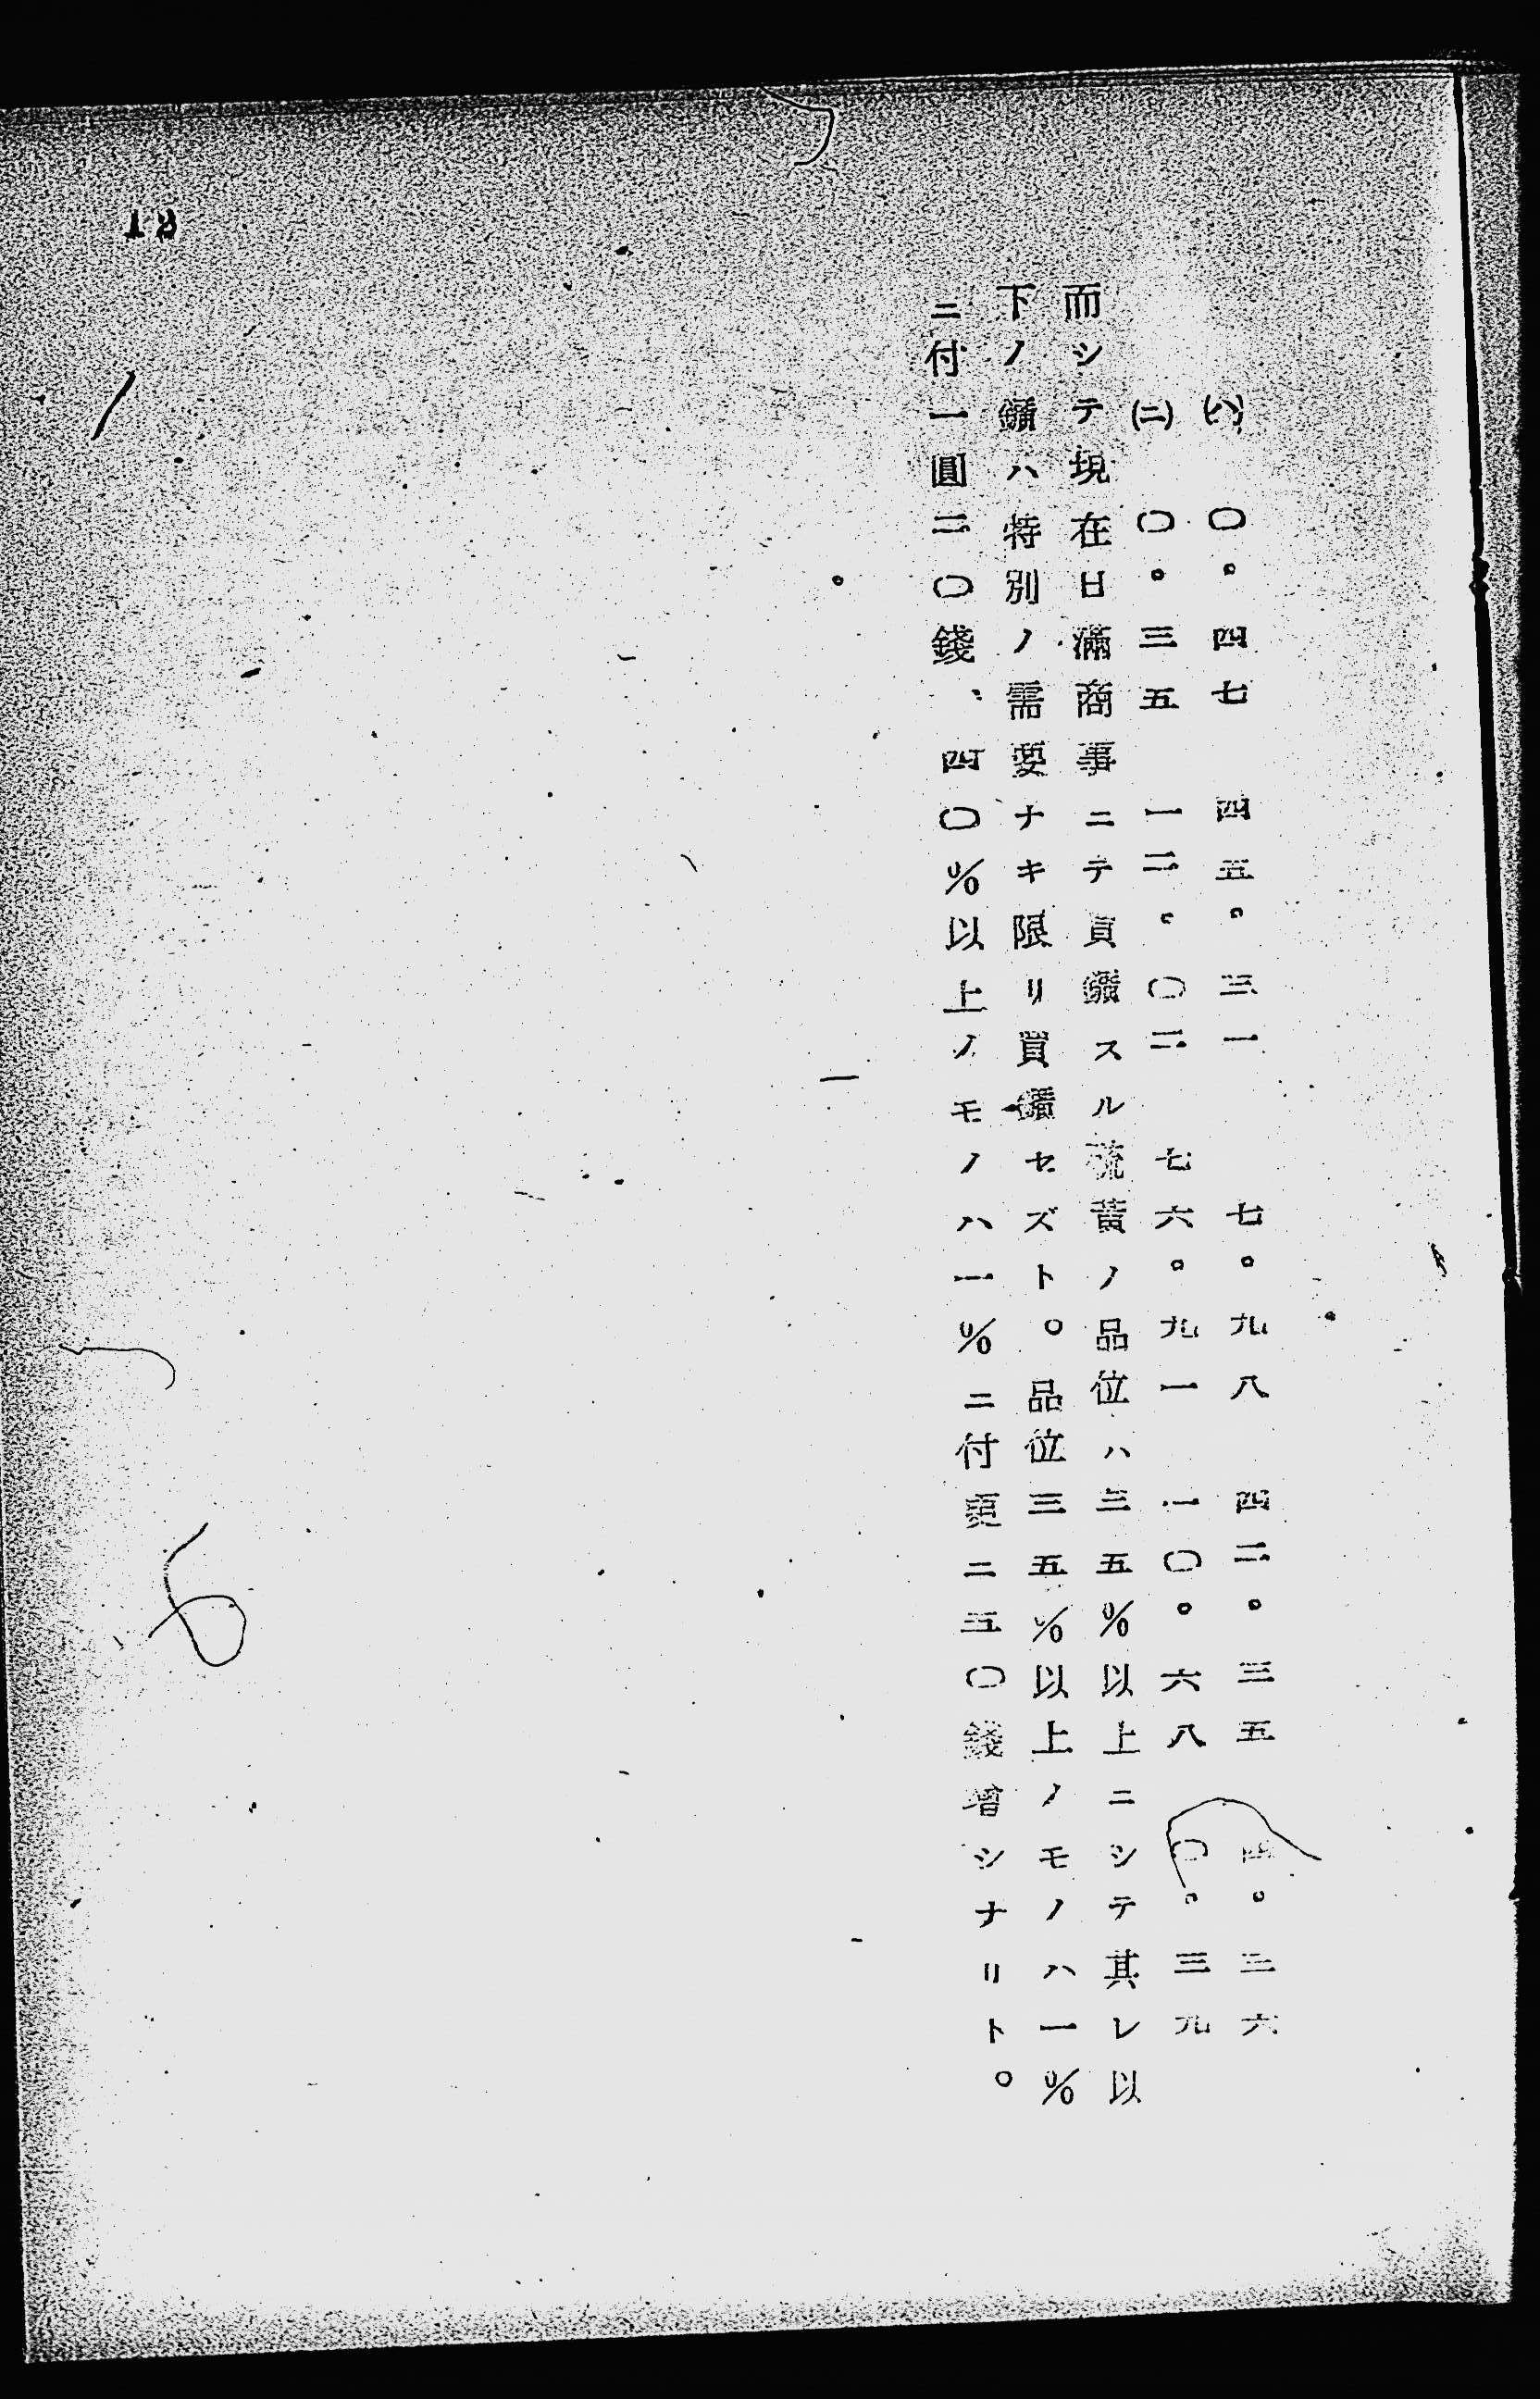 (ハ) 〇。四七 四五。三一 七。九八 四二。三五 四。三六
(ニ) 〇。三五 一二。〇二 七六。九一 一〇。六八 〇。三九
而シテ現在日滿商事ニテ買鑛スル硫黃ノ品位ハ三五%以上ニシテ其レ以
下ノ鑛ハ特別ノ需要ナキ限リ買鑛セズト。品位三五%以上ノモノハ一%
ニ付一圓二〇錢、四〇%以上ノモノハ一%ニ付更ニ五〇錢增シナリト。